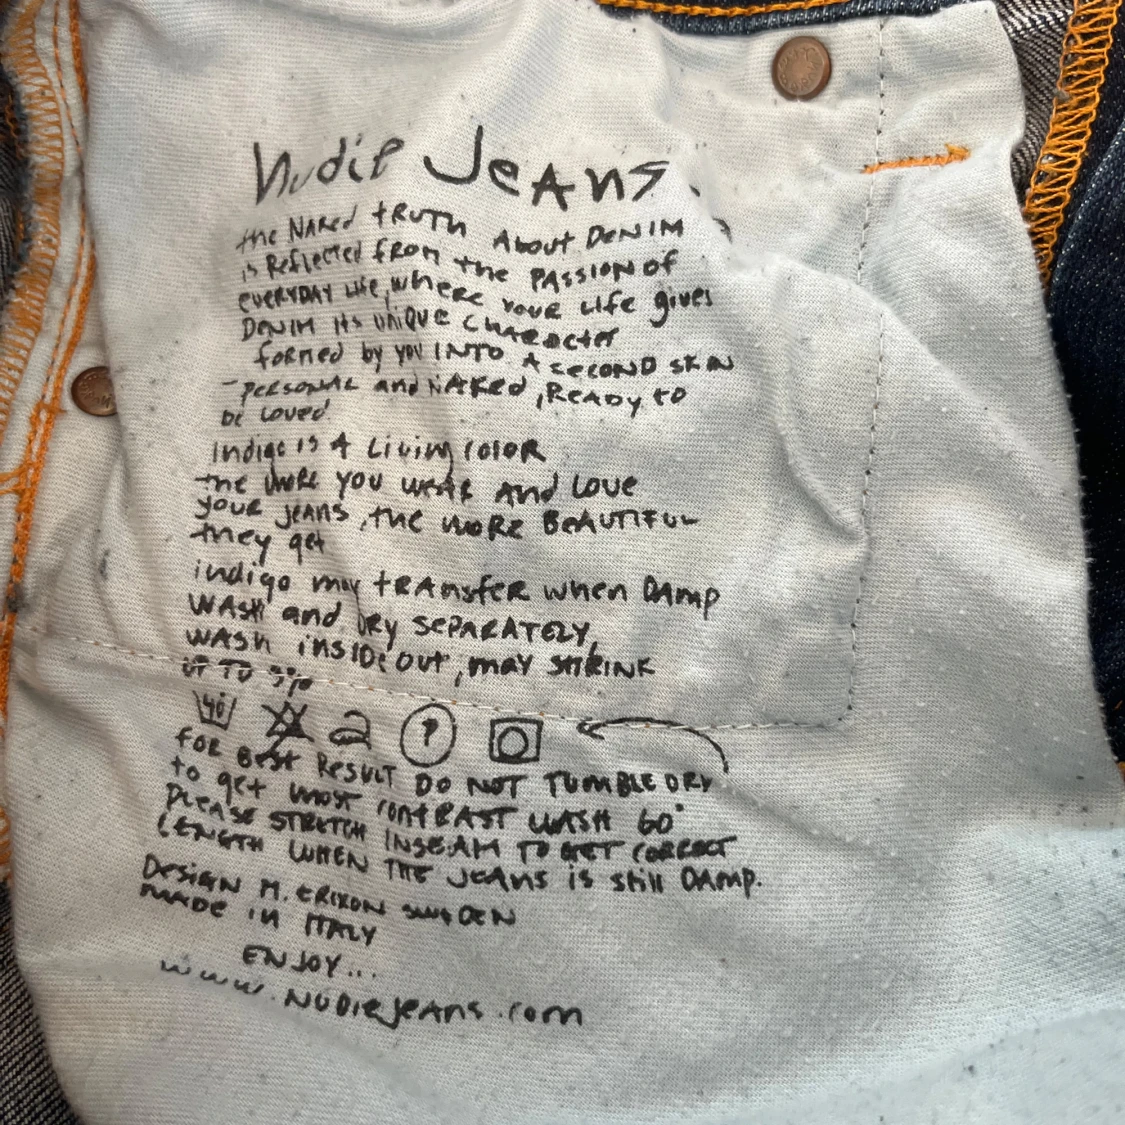 Nudie Jeans.
the NAKed tRUTH About DENIM
is Reflected fROM the PASSION of
EVERYDAY LIfe, where YOUR Life gives
DENIM its UNIQUE CHARActer
formed by you INTO A SECOND SKIN
- PERSONAL and NAKed, READY to
be Loved
Indigo is A Living COlOR
the MORE YOU WEAR And Love
YOUR JEANS, the MORE BEAUTIFUL
they get
indigo may tRAnsfeR when DAMp
WASH and DRY SEPARATELY,
WASH insIDE out, may SHRINK
UP TO 3%
40
P
FOR BEST RESULT DO NOT TUMBLE DRY
to get most contRAST WASH 60°
PLEASE STRETCH INSEAM TO GET CORRECT
LENGTH WHEN THE JEANS is still DAMP.
DESIGN M. ERIXON SWEDEN
MADE in ITALY
ENJOY...
www.NUDIEJEANS.com